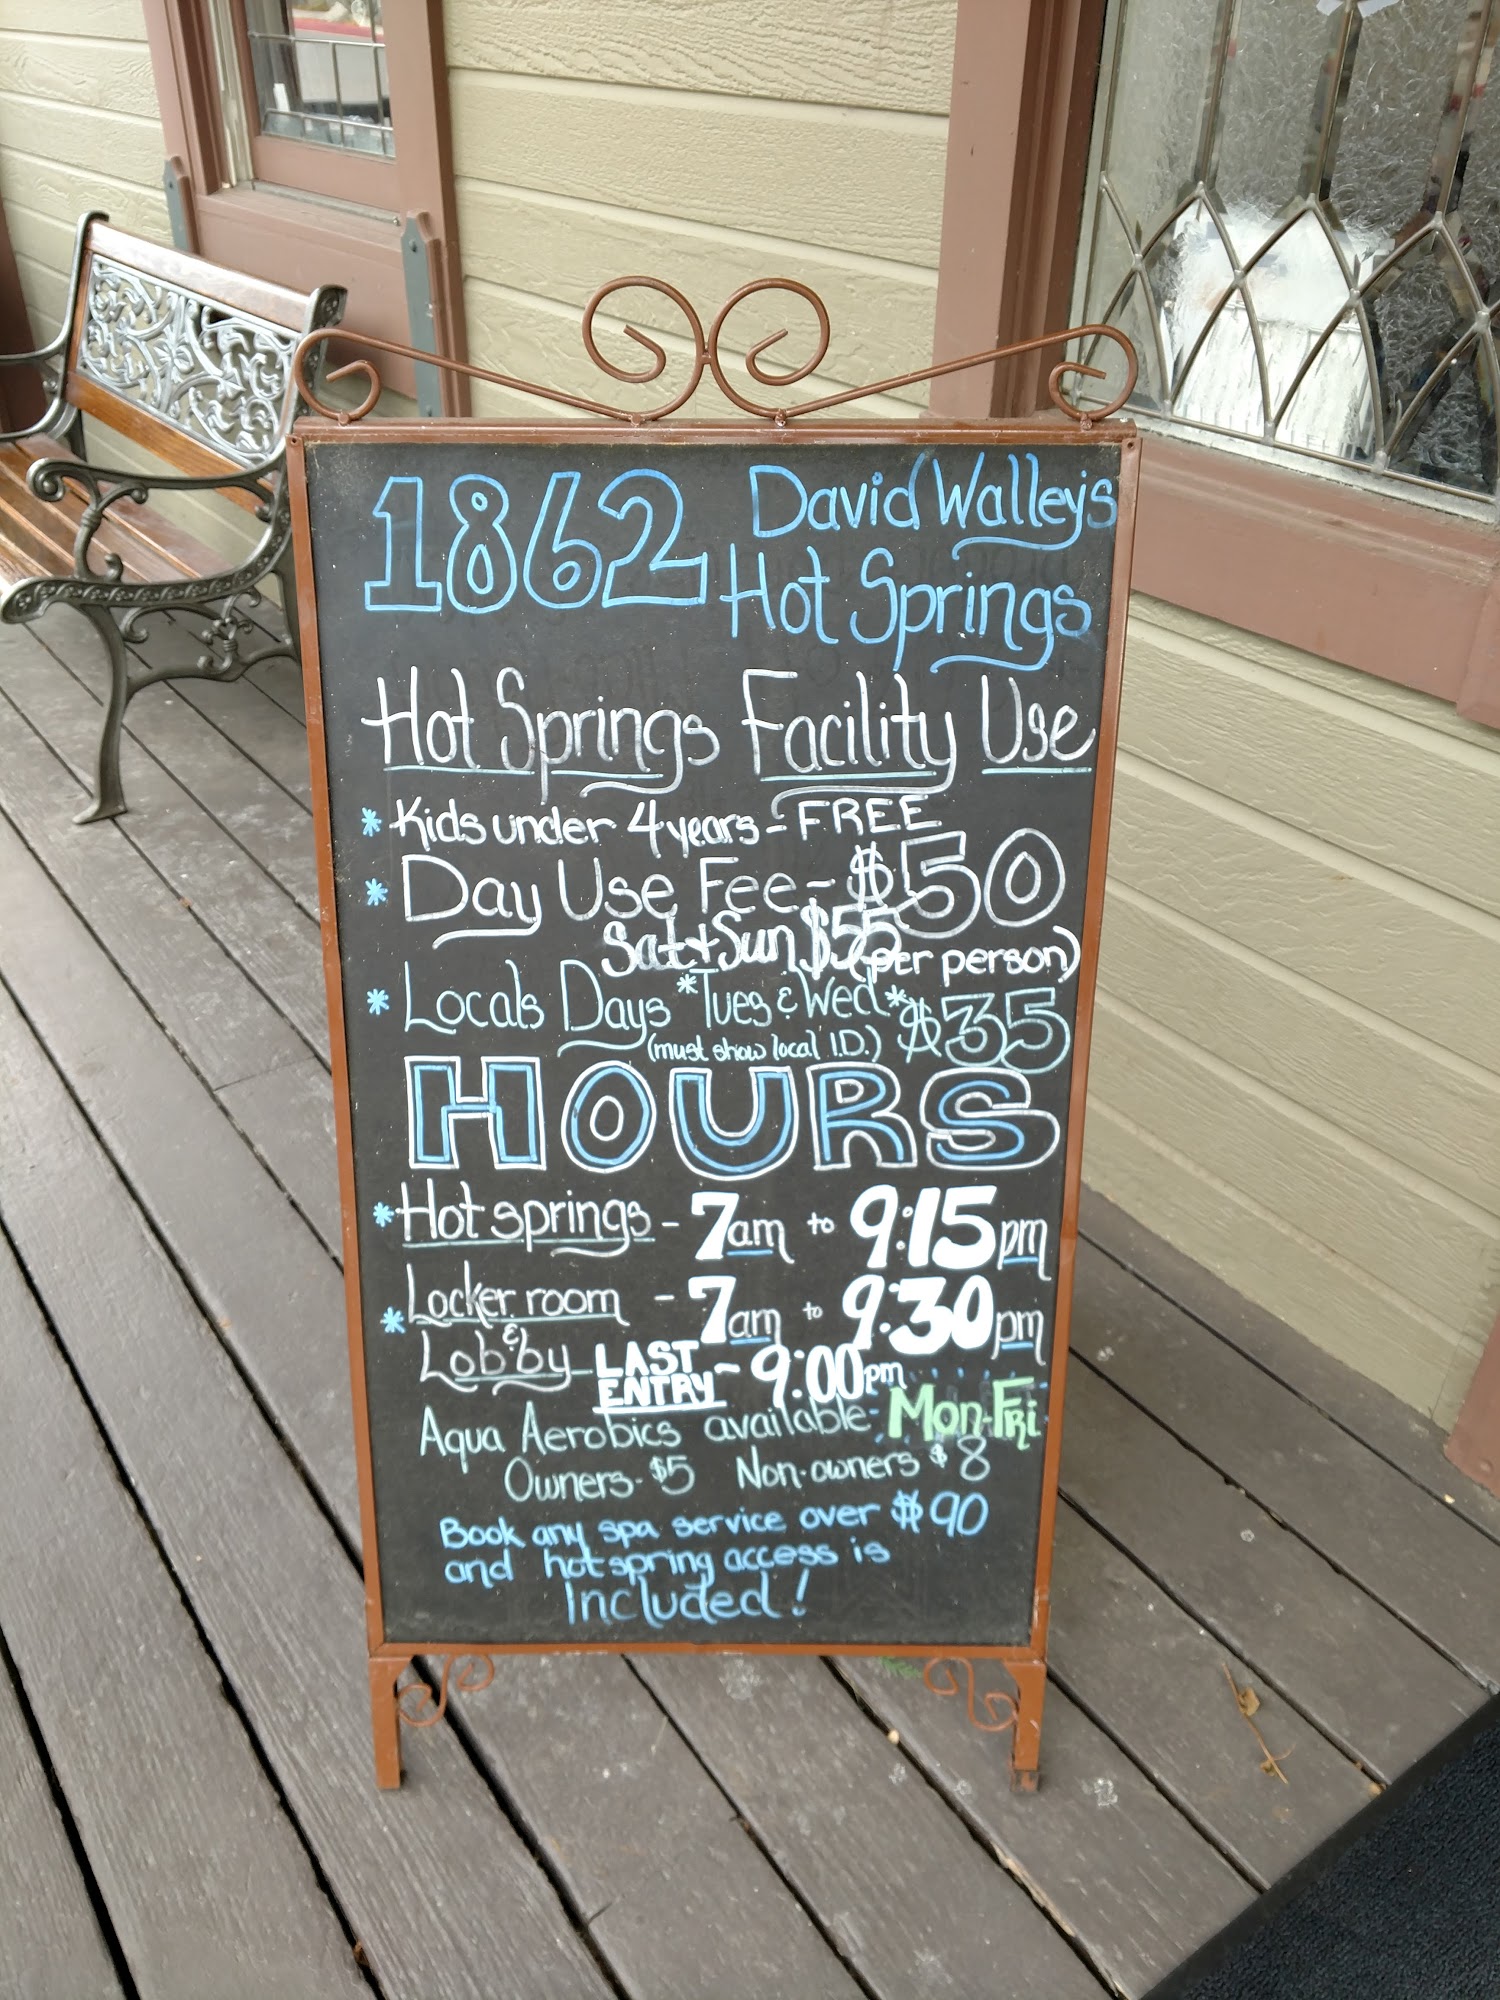 1862 David Walley's
Hot Springs
Hot Springs Facility Use
* Kids under 4 years - FREE
* Day Use Fee - $50
Sat + Sun $55 (per person)
* Locals Days *Tues & Wed* $35
(must show local I.D.)
HOURS
* Hot springs - 7am to 9:15pm
* Locker room - 7am to 9:30pm
& Lobby - LAST ENTRY - 9:00pm
Aqua Aerobics available Mon-Fri
Owners - $5 Non-owners $8
Book any spa service over $90
and hot spring access is
Included!